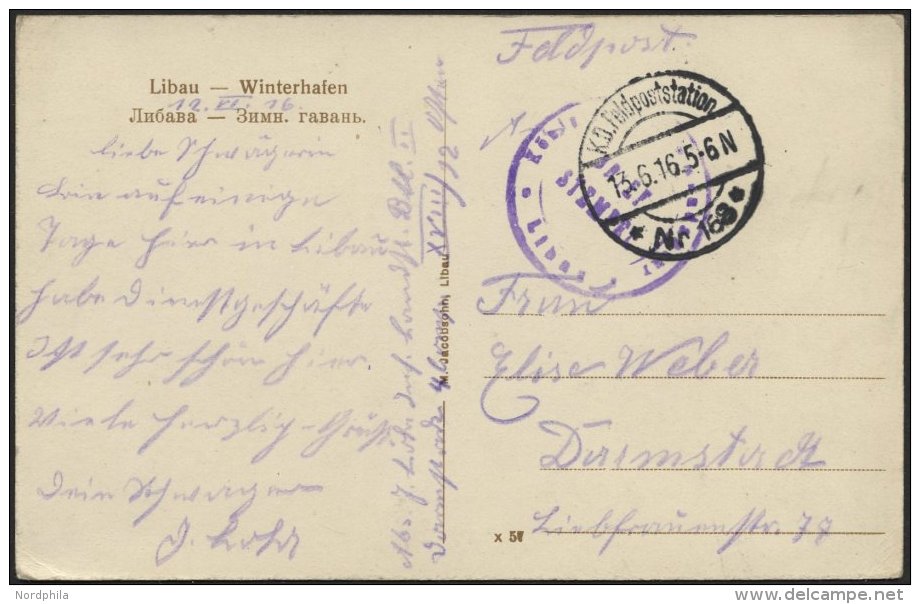 Libau — Winterhafen
12. VI. 16.
Либава — Зимн. гавань.
liebe Schwägerin
bin auf einige
Tage hier in Libau
habe Dienstgeschäfte
Ist sehr schön hier.
Viele herzlich Grüße
Dein Schwager
J.
Abs. J. Landst. Batl. II
XVIII/12
M. Jacobsohn, Libau
Feldpost.
K.D. Feldpoststation
13.6.16. 5-6 N
* Nr 168 *
Libau
Frau
Elise Weber
Darmstadt
Liebfrauenstr. 77
x 57
Nordphila
delcampe.net